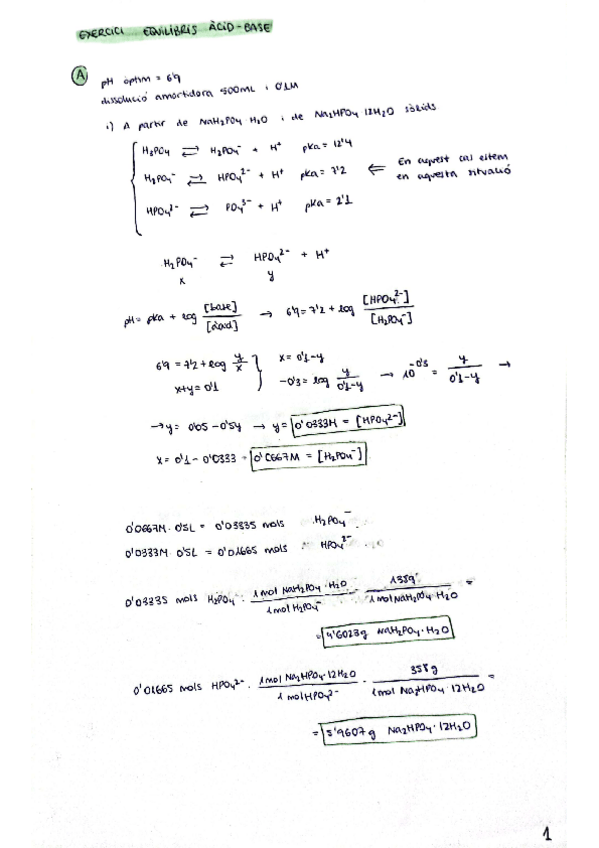 EXERCICI EQUILIBRIS ÀCID-BASE
A pH òptim = 6'9
dissolució amortidora 500mL i 0'1M
i) A partir de NaH₂PO₄ H₂O i de Na₂HPO₄ 12H₂O sòlids
H₃PO₄ ⇄ H₂PO₄⁻ + H⁺ pka = 12'4
H₂PO₄⁻ ⇄ HPO₄²⁻ + H⁺ pka = 7'2 ⇐ En aquest cas estem
en aquesta situació
HPO₄²⁻ ⇄ PO₄³⁻ + H⁺ pka = 2'1
H₂PO₄⁻ ⇄ HPO₄²⁻ + H⁺
x y
pH = pka + log [base]/[àcid] → 6'9 = 7'2 + log [HPO₄²⁻]/[H₂PO₄⁻]
6'9 = 7'2 + log y/x x = 0'1-y
x+y = 0'1 -0'3 = log y/0'1-y → 10^-0'3 = y/0'1-y →
→ y = 0'05 - 0'5y → y = 0'0333M = [HPO₄²⁻]
x = 0'1 - 0'0333 = 0'0667M = [H₂PO₄⁻]
0'0667M · 0'5L = 0'03335 mols H₂PO₄⁻
0'0333M · 0'5L = 0'01665 mols HPO₄²⁻
0'03335 mols H₂PO₄⁻ · 1 mol NaH₂PO₄·H₂O/1 mol H₂PO₄⁻ · 138g/1 mol NaH₂PO₄·H₂O =
= 4'6023g NaH₂PO₄·H₂O
0'01665 mols HPO₄²⁻ · 1 mol Na₂HPO₄·12H₂O/1 mol HPO₄²⁻ · 358g/1 mol Na₂HPO₄·12H₂O =
= 5'9607g Na₂HPO₄·12H₂O
1